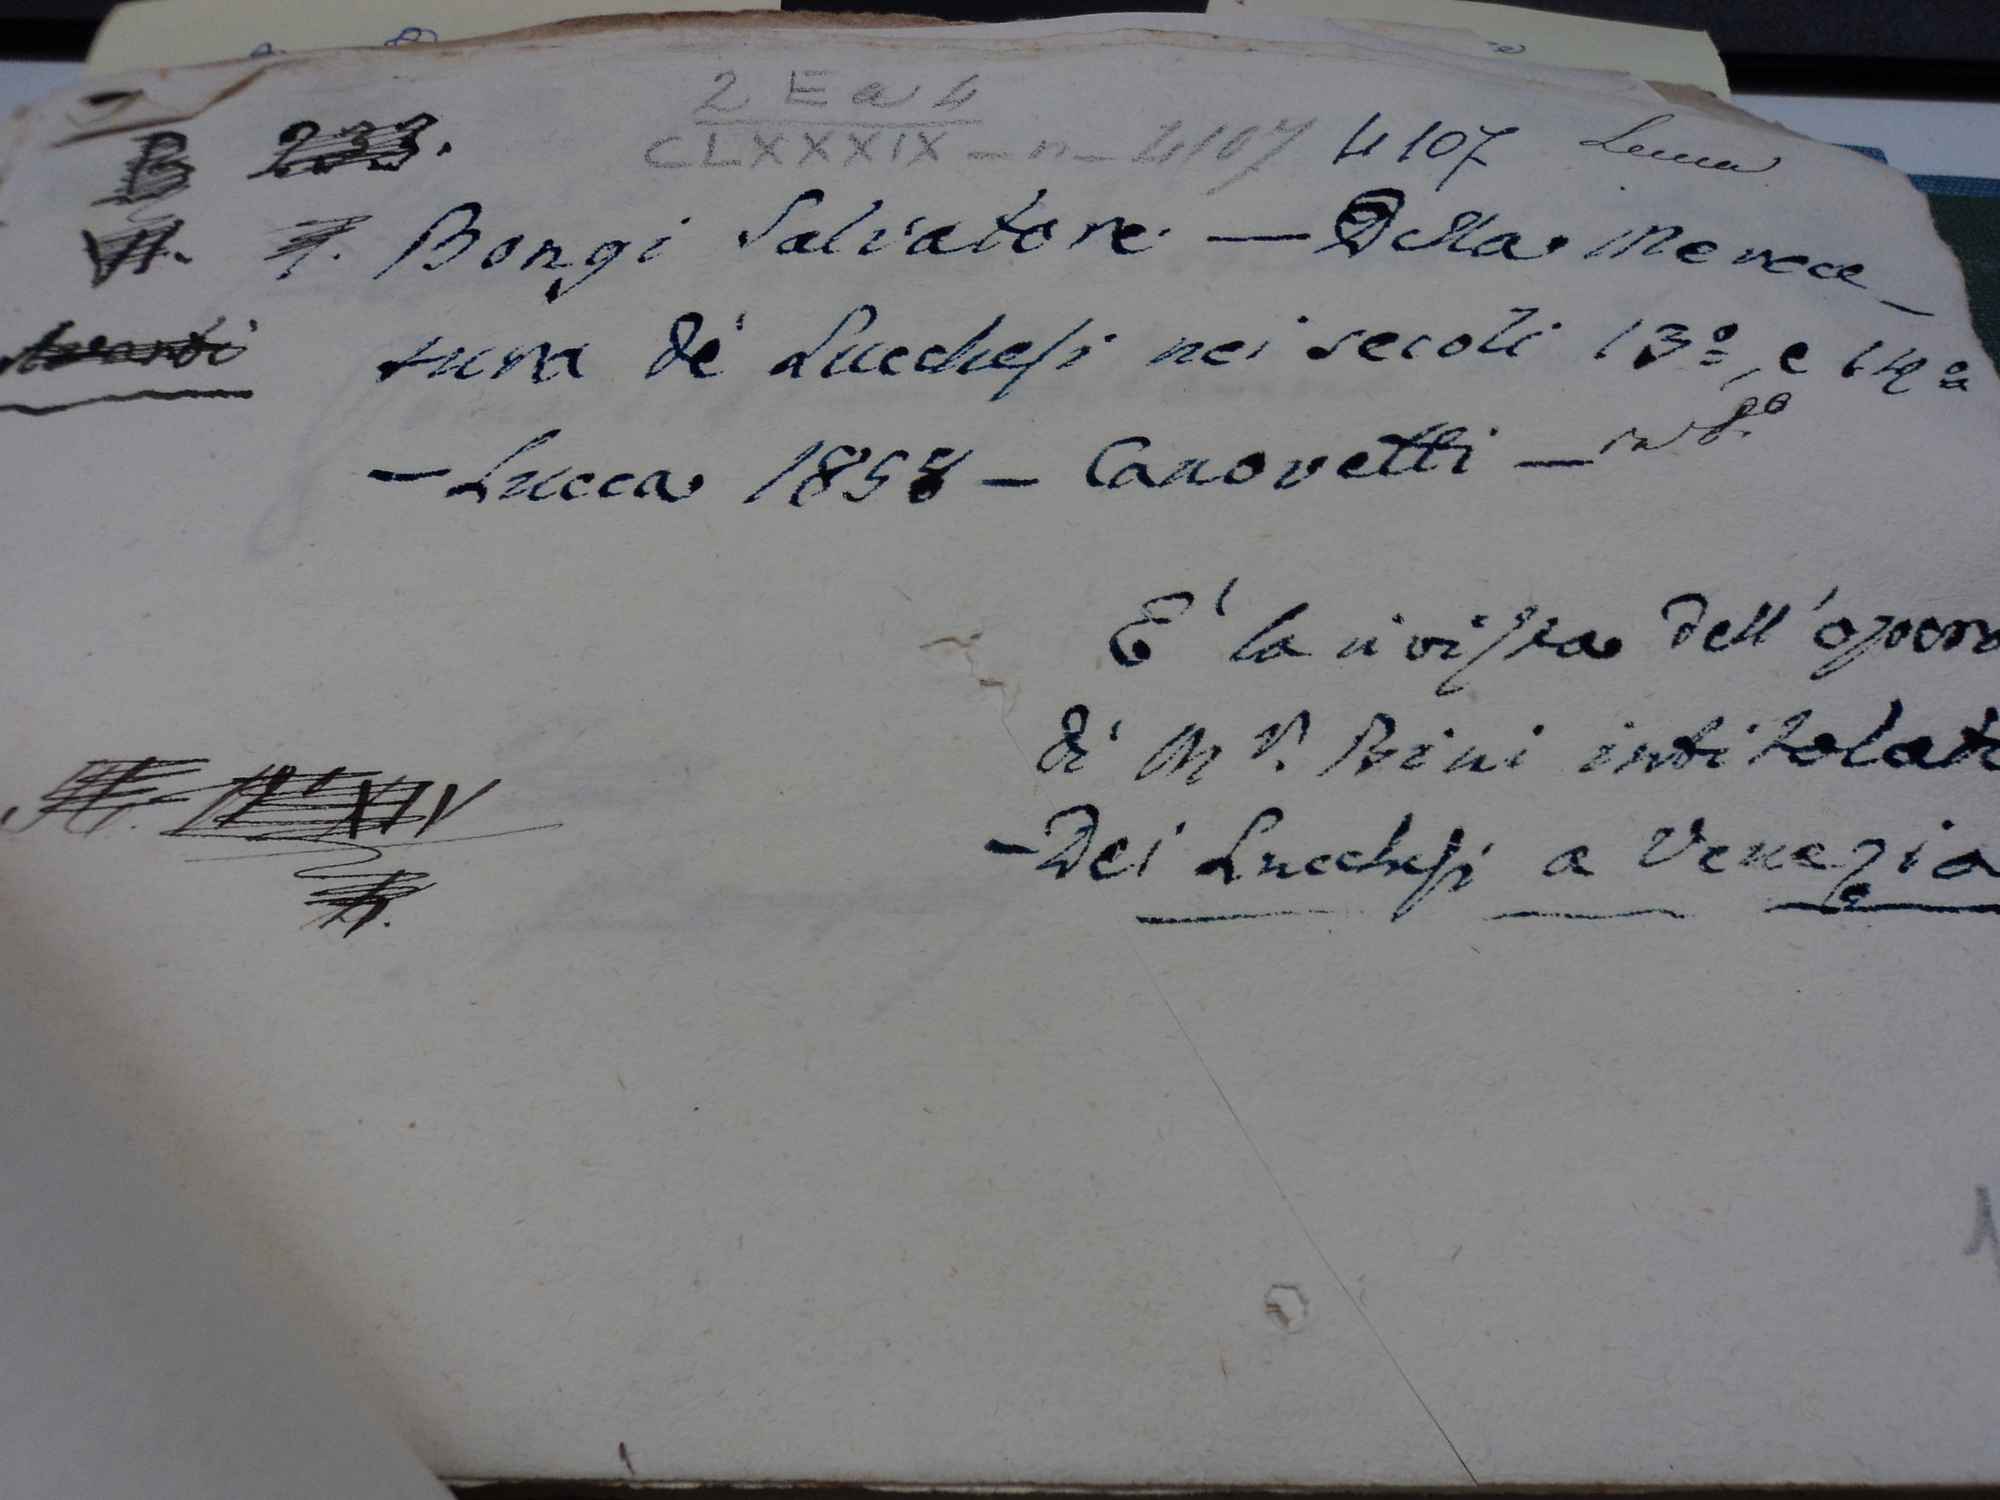 2 E a 4
B 233. CLXXXIX - n - 4107 4107 Lucca
Bongi Salvatore - Della Merca-
tura de' Lucchesi nei secoli 13º, e 14º
- Lucca 1858 - Canovetti - in 8º
E' la rivista dell'opera
di Mr. Bini intitolata
- Dei Lucchesi a Venezia